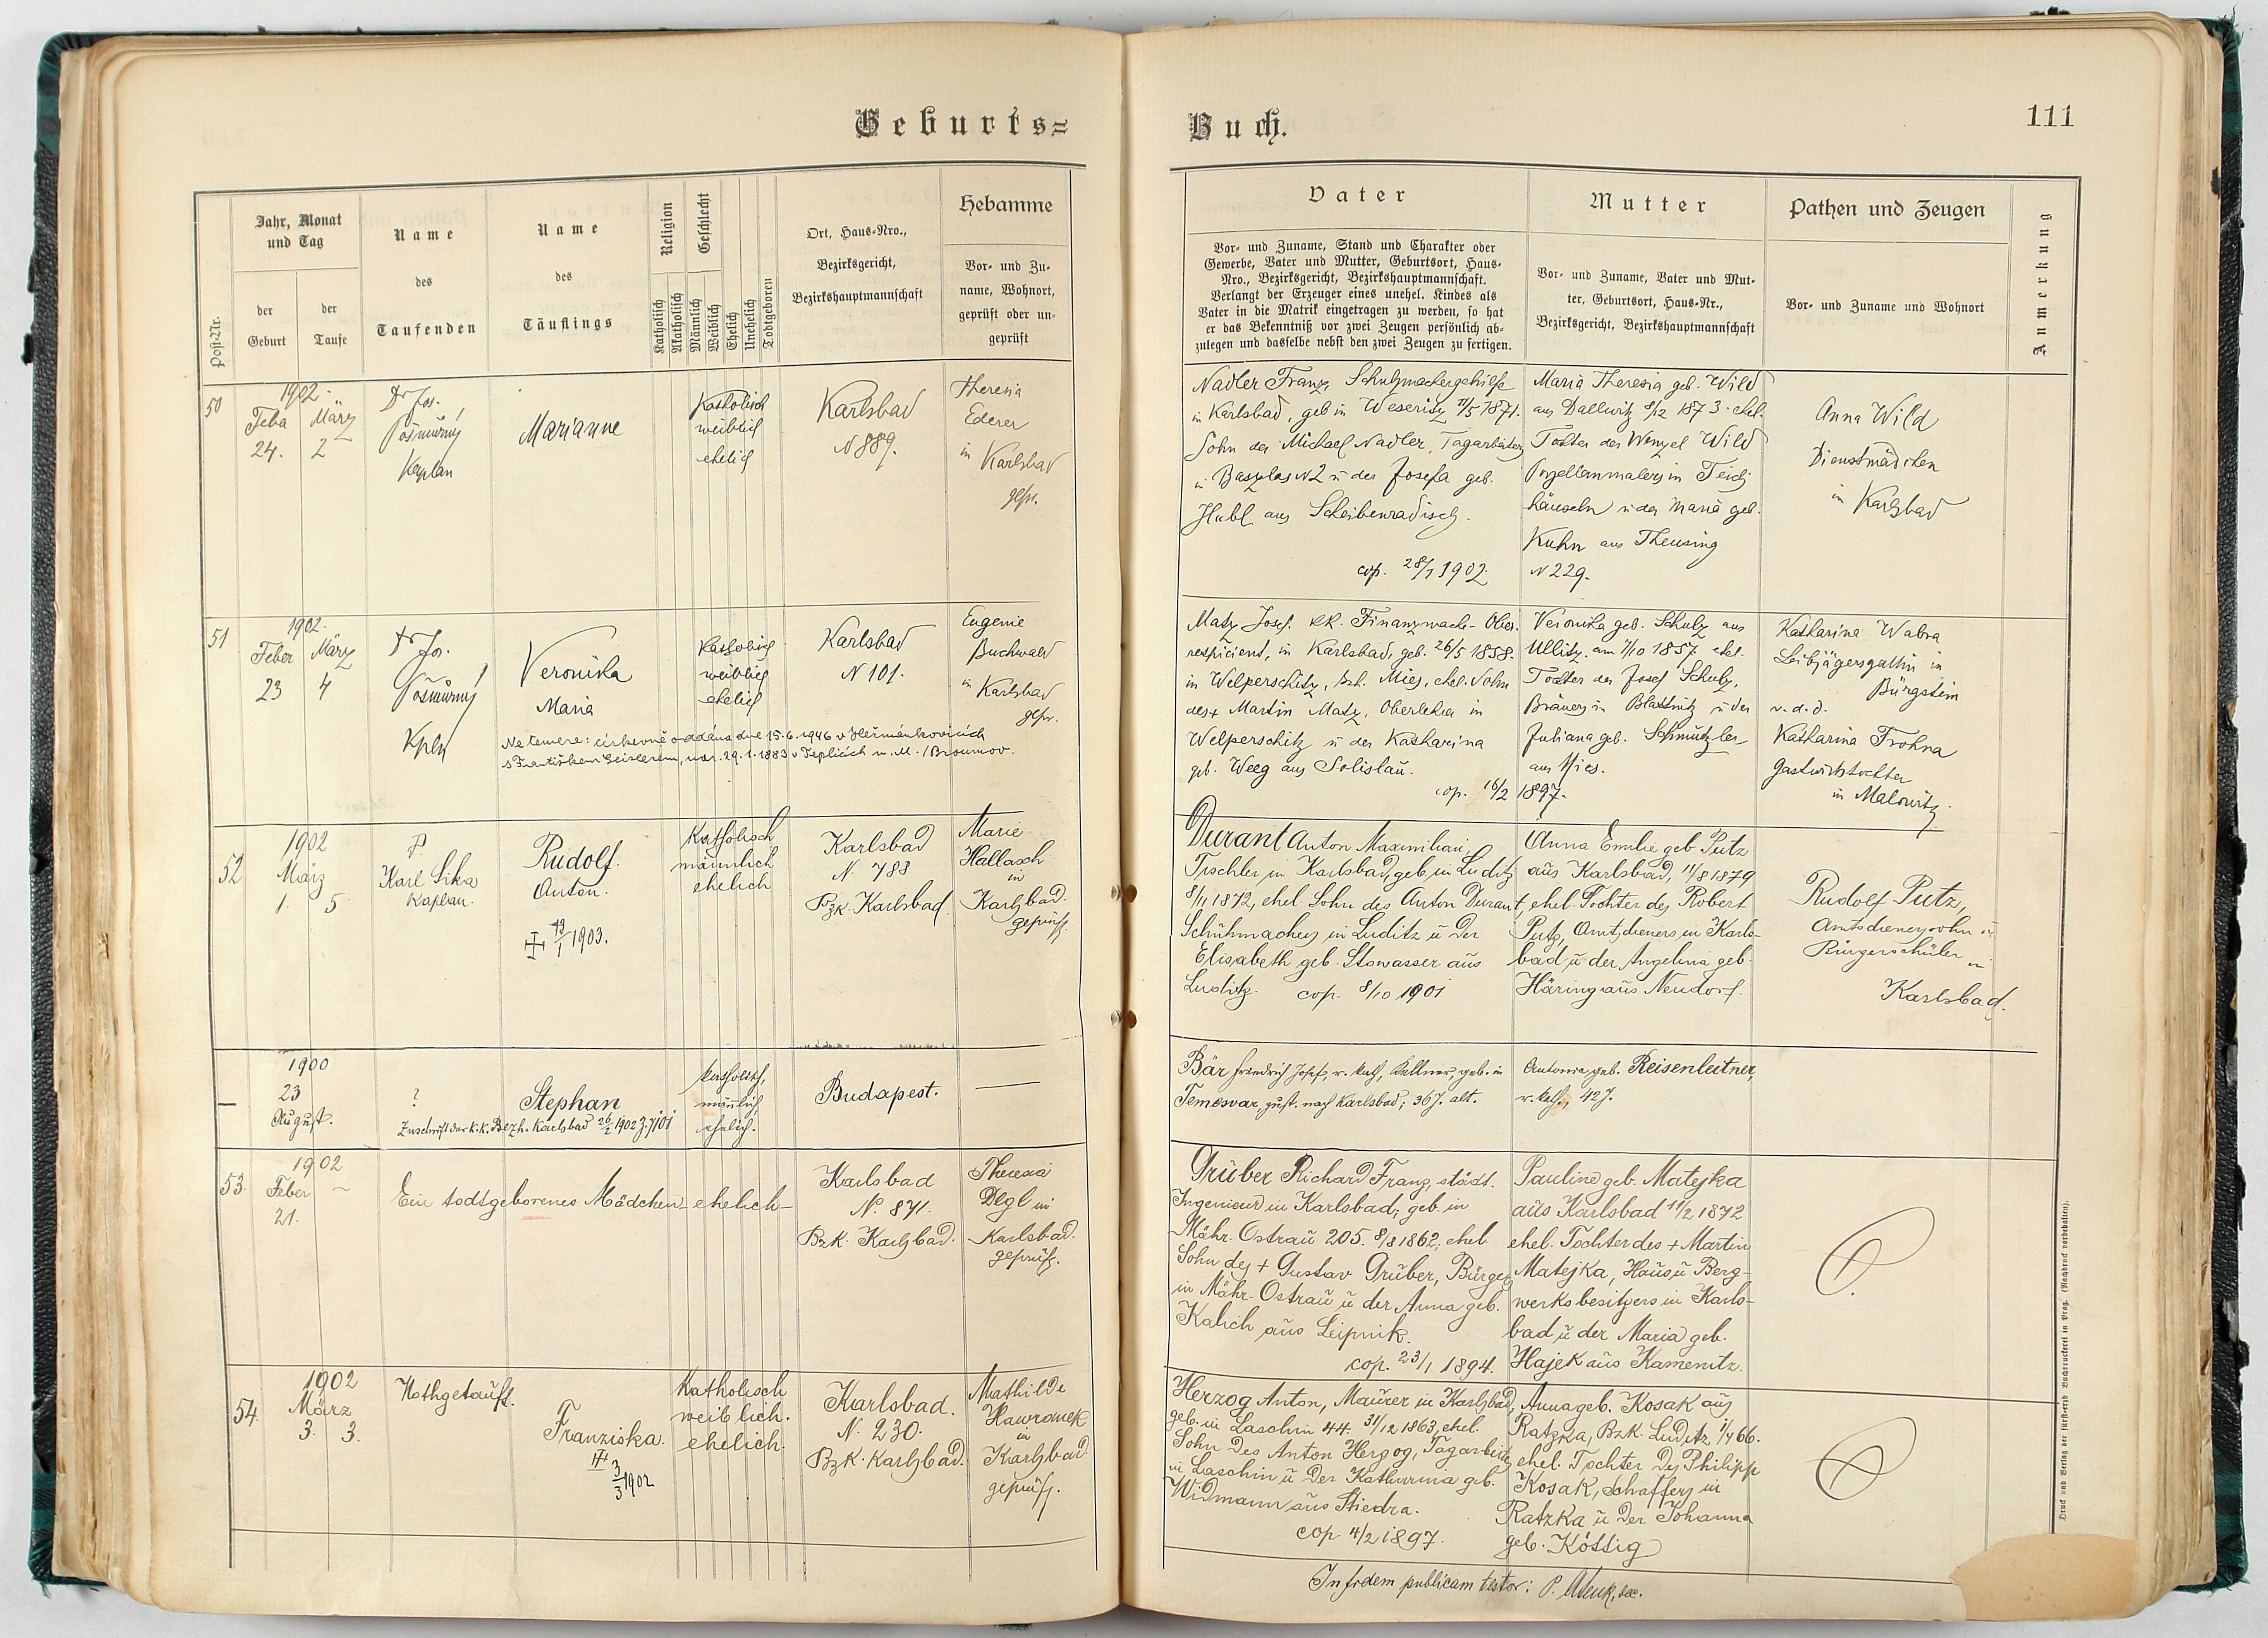 Geburts=
Buch.
111
Post-Nr.
Jahr, Monat
und Tag
der
Geburt
der
Taufe
Name
des
Taufenden
Name
des
Täuflings
Religion
Katholisch
Akatholisch
Geschlecht
Männlich
Weiblich
Ehelich
Unehelich
Todtgeboren
Ort, Haus-Nro.,
Bezirksgericht,
Bezirkshauptmannschaft
Hebamme
Vor- und Zu-
name, Wohnort,
geprüft oder un-
geprüft
Vater
Vor- und Zuname, Stand und Charakter oder
Gewerbe, Vater und Mutter, Geburtsort, Haus-
Nro., Bezirksgericht, Bezirkshauptmannschaft.
Verlangt der Erzeuger eines unehel. Kindes als
Vater in die Matrik eingetragen zu werden, so hat
er das Bekenntniß vor zwei Zeugen persönlich ab-
zulegen und dasselbe nebst den zwei Zeugen zu fertigen.
Mutter
Vor- und Zuname, Vater und Mut-
ter, Geburtsort, Haus-Nr.,
Bezirksgericht, Bezirkshauptmannschaft
Pathen und Zeugen
Vor- und Zuname und Wohnort
Anmerkung
50
1902
Feba März
24. 2
Dr Jos.
Pošmůrný
Kaplan
Marianne
Katholisch
weiblich
ehelich
Karlsbad
N 889.
Theresia
Ederer
in Karlsbad
gepr.
Nadler Franz Schuhmachergehilfe
in Karlsbad, geb in Weseritz 11/5 1871.
Sohn des Michael Nadler, Tagarbeiters
in N2 u der Josefa geb.
Hubl aus Scheibenradisch.
cop. 28/1 1902
Maria Theresia geb. Wild
aus Dallwitz 8/12 1873. ehel.
Tochter des Wenzel Wild
Porzellanmalers in Teich
häuseln u der Maria geb.
Kuhn aus Theusing
N 229.
Anna Wild
Dienstmädchen
in Karlsbad
51
1902
Feber März
23 4
Dr Jos.
Pošmůrný
Kpln
Veronika
Maria
Ne temere: církevně oddána dne 15.6.1946 v Heřmánkovicích
s Františkem Geislerem, nar. 29.1.1883 v Teplicích n. M. / Broumov.
Katholisch
weiblich
ehelich
Karlsbad
N 101.
Eugenie
Buchwald
in Karlsbad
gepr.
Matz Josef. kk. Finanzwach-Ober.
respicient, in Karlsbad, geb. 26/5 1858.
in Welperschitz, Bzh. Mies, ehel. Sohn
des + Martin Matz, Oberlehrer in
Welperschitz u der Katharina
geb. Weeg aus Solislau.
cop. 16/2 1897.
Veronika geb. Schulz aus
Ullitz. am 7/10 1857. ehel.
Tochter des Josef Schulz,
Bräuers in Blattnitz u der
Juliana geb. Schmutzler
aus Mies.
Katharina Wabra
Leibjägersgattin in
Bürgstein
v. d. d.
Katharina Frohna
Gastwirthstochter
in Malowitz.
52
1902
März
1. 5
P.
Karl Sika
Kaplan.
Rudolf.
Anton.
13/1 1903.
Katholisch
männlich
ehelich
Karlsbad
N. 783
Bzk. Karlsbad
Marie
Hallasch
in
Karlsbad.
geprüft.
Durant Anton Maximilian,
Tischler in Karlsbad, geb. in Luditz
8/11 1872, ehel. Sohn des Anton Durant,
Schuhmachers in Luditz u der
Elisabeth geb. Stowasser aus
Luditz. cop. 8/10 1901
Anna Emilie geb Putz
aus Karlsbad, 11/8 1879
ehel. Tochter des Robert
Putz, Amtsdieners in Karls-
bad u der Angelina geb.
Häring aus Neudorf.
Rudolf Putz,
Amtsdienerssohn u
Bürgerschüler in
Karlsbad.
1900
23
August.
?
Stephan
Zuschrift der k.k. Bezh. Karlsbad 26/2 1902 Z. 7101
katholisch,
männlich,
ehelich.
Budapest.
Bär Friedrich Josef, r. kath, Kellner, geb. in
Temesvar, zust. nach Karlsbad; 36 J. alt.
Antonia geb. Reisenleitner,
r. kath., 42 J.
53.
1902
Feber
21.
Ein todtgeborenes Mädchen ehelich
Karlsbad
N. 871.
Bzk. Karlsbad.
Theresia
Degl in
Karlsbad.
geprüft.
Gruber Richard Franz, städt.
Ingenieur in Karlsbad, geb. in
Mähr. Ostrau 205. 8/8 1862, ehel.
Sohn des + Gustav Gruber, Bürgers
in Mähr. Ostrau u der Anna geb.
Kalich aus Leipnik.
cop. 23/1 1894.
Pauline geb. Matejka
aus Karlsbad 11/2 1872
ehel. Tochter des + Martin
Matejka, Haus u Berg-
werksbesitzers in Karls-
bad u der Maria geb.
Hajek aus Kamenitz.
54.
1902
März
3. 3.
Nothgetauft.
Franziska.
3/3 1902
Katholisch
weiblich.
ehelich.
Karlsbad.
N. 230.
Bzk. Karlsbad.
Mathilde
Hawranek
in
Karlsbad
geprüft.
Herzog Anton, Maurer in Karlsbad,
geb. in Laschin 44. 31/12 1863, ehel.
Sohn des Anton Herzog, Tagarbeiters
in Laschin u der Katharina geb.
Widmann aus Stiedra.
cop 4/2 1897.
Anna geb. Kosak aus
Ratzka, Bzk. Luditz 1/4 66.
ehel. Tochter des Philipp
Kosak, Schaffers in
Ratzka u der Johanna
geb. Kössig
In fidem publicam testor: P.
Druck und Verlag der fürst-erzb Buchdruckerei in Prag. (Nachdruck vorbehalten).